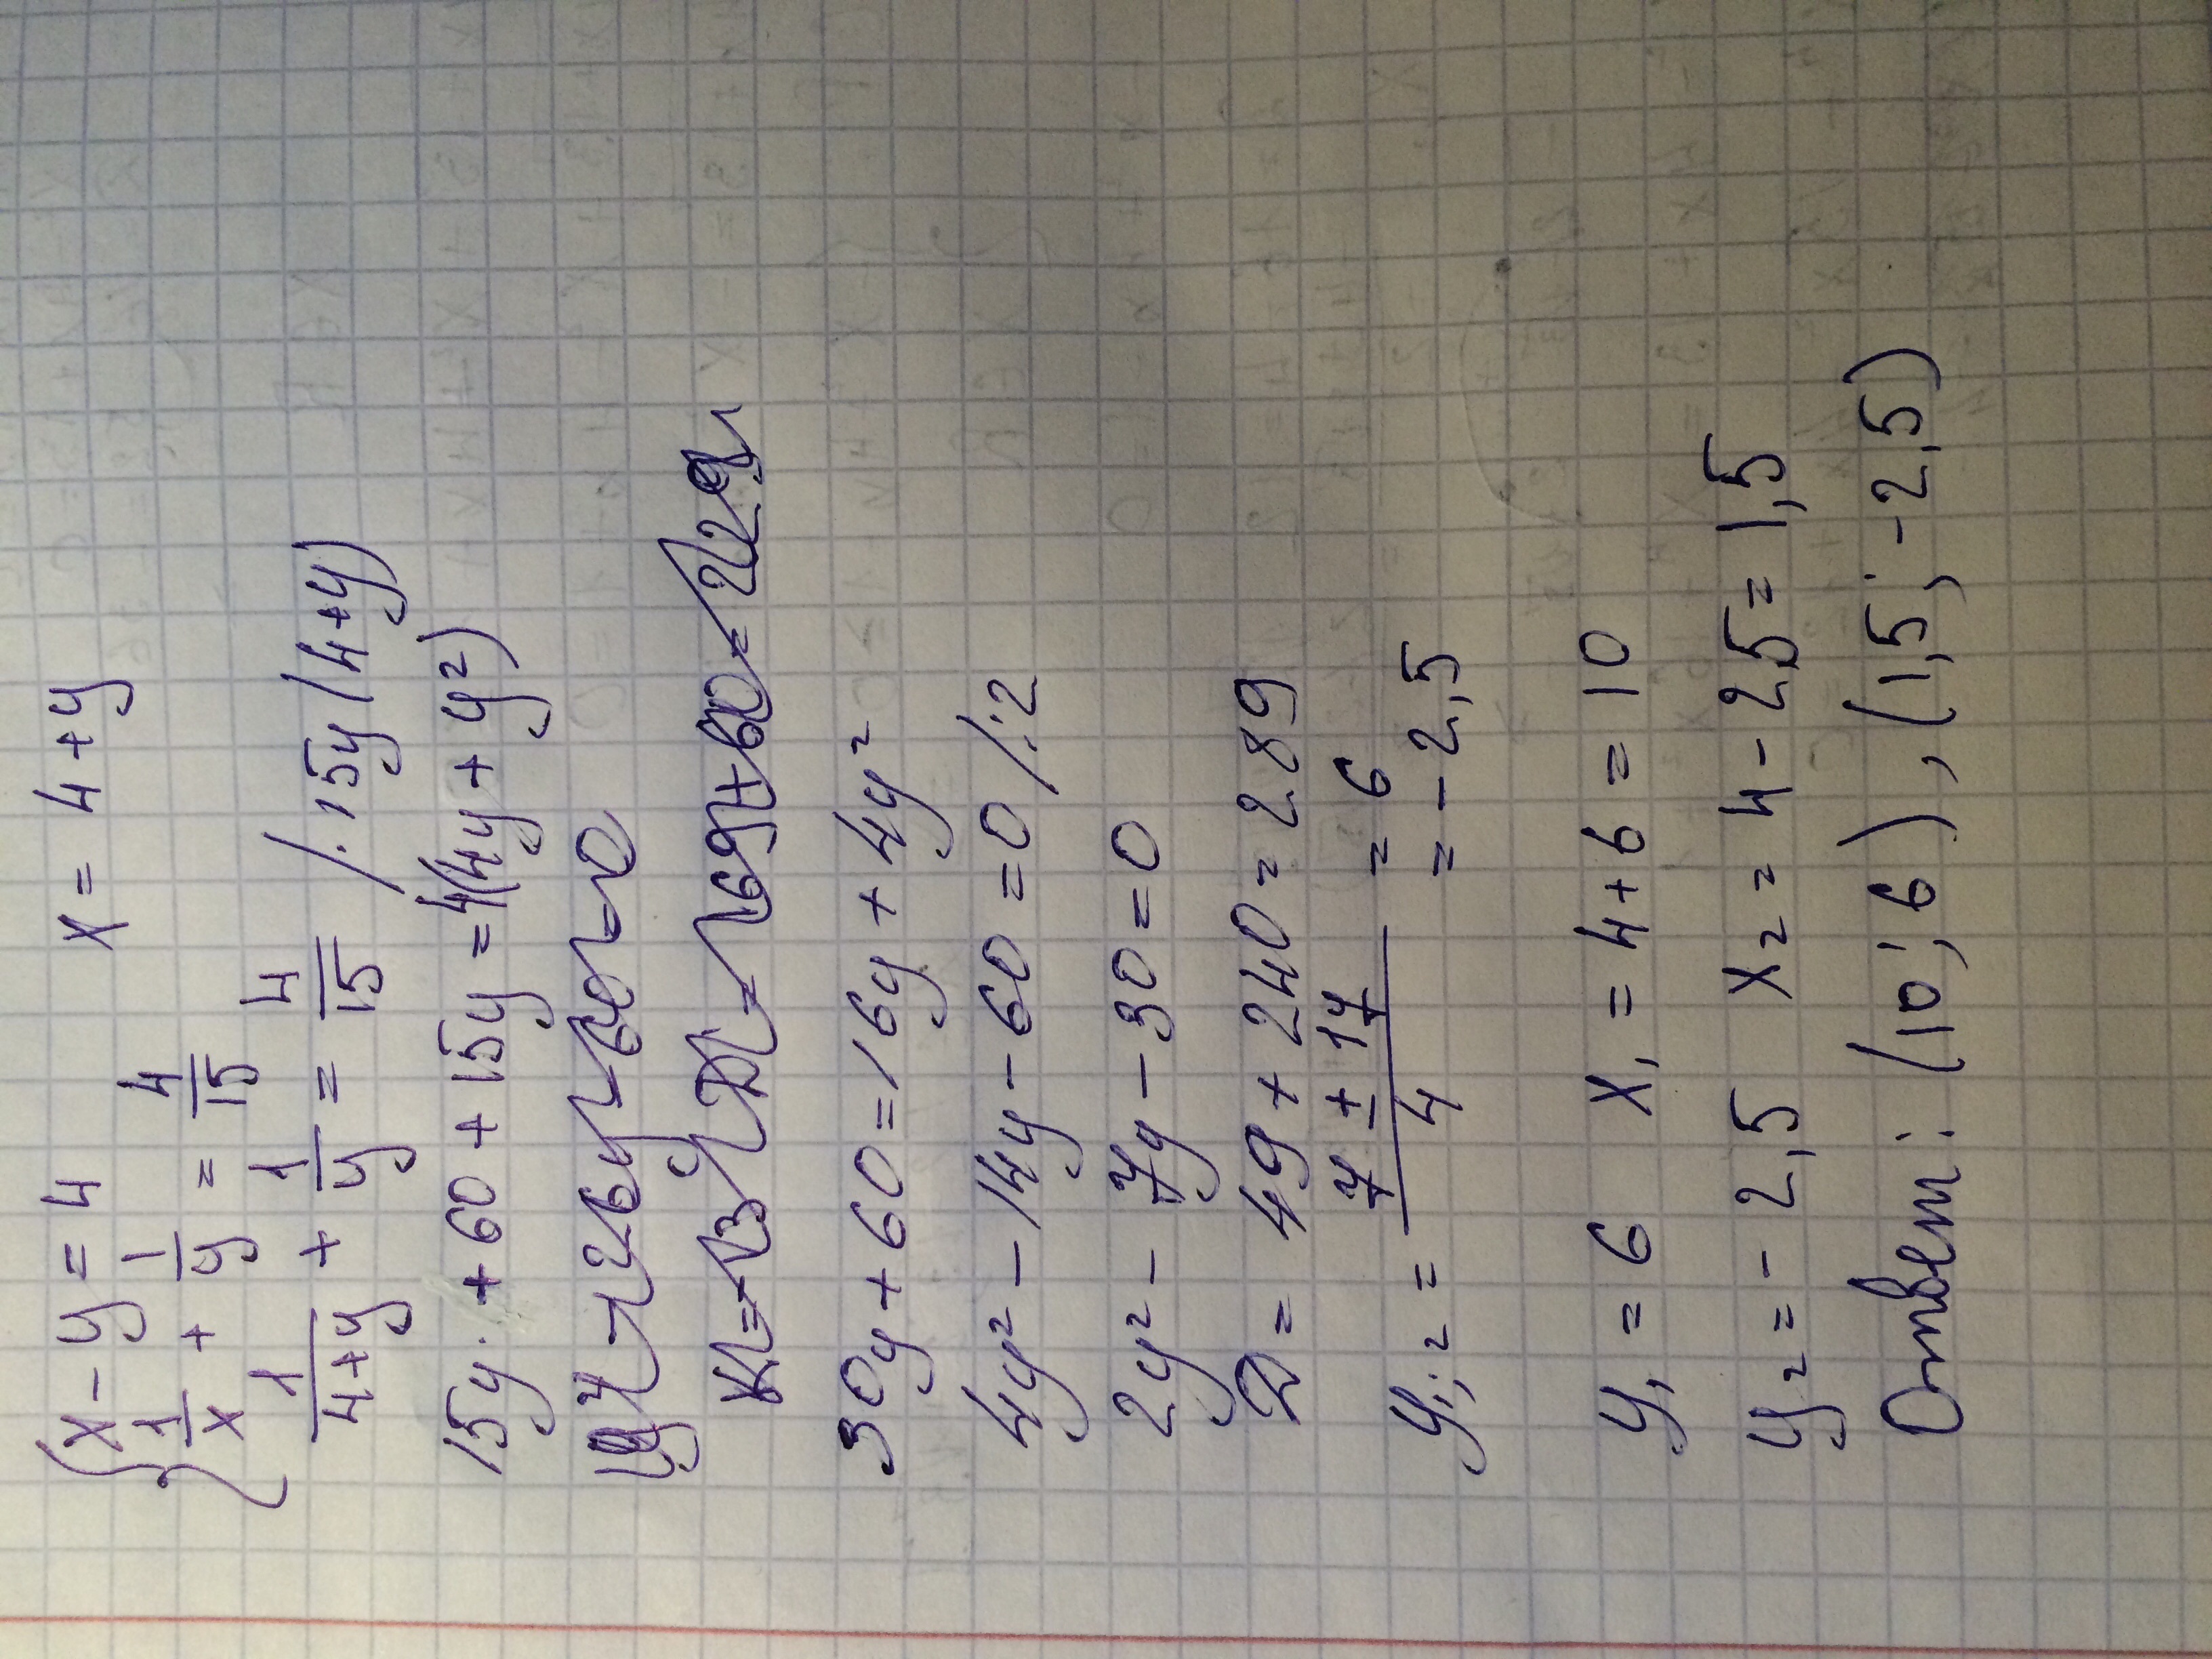 { x - y = 4    x = 4 + y
1/x + 1/y = 4/15
1/(4+y) + 1/y = 4/15 /·15y(4+y)
15y + 60 + 15y = 4(4y + y²)
- 26y - 60 = 0
K = 13 D = 169 + 60 = 229
30y + 60 = 16y + 4y²
4y² - 14y - 60 = 0 /:2
2y² - 7y - 30 = 0
D = 49 + 240 = 289
y₁;₂ = (7 ± 17)/4 = 6 = -2,5
y₁ = 6    x₁ = 4 + 6 = 10
y₂ = - 2,5    x₂ = 4 - 2,5 = 1,5
Ответ: (10; 6), (1,5; -2,5)